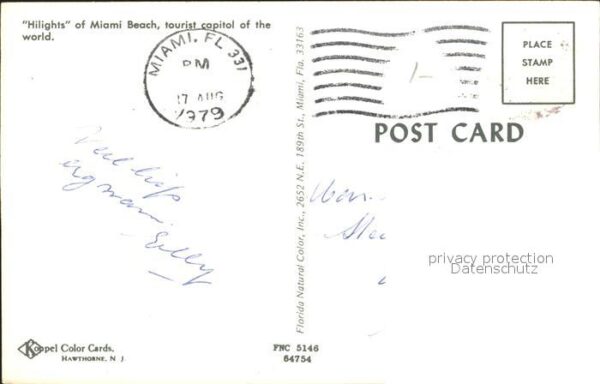 "Hilights" of Miami Beach, tourist capitol of the
world.
MIAMI, FL 331
PM
17 AUG
1979
PLACE
STAMP
HERE
POST CARD
Florida Natural Color, Inc., 2652 N.E. 189th St., Miami, Fla. 33163
privacy protection
Datenschutz
Koppel Color Cards.
HAWTHORNE, N J
FNC 5146
64754